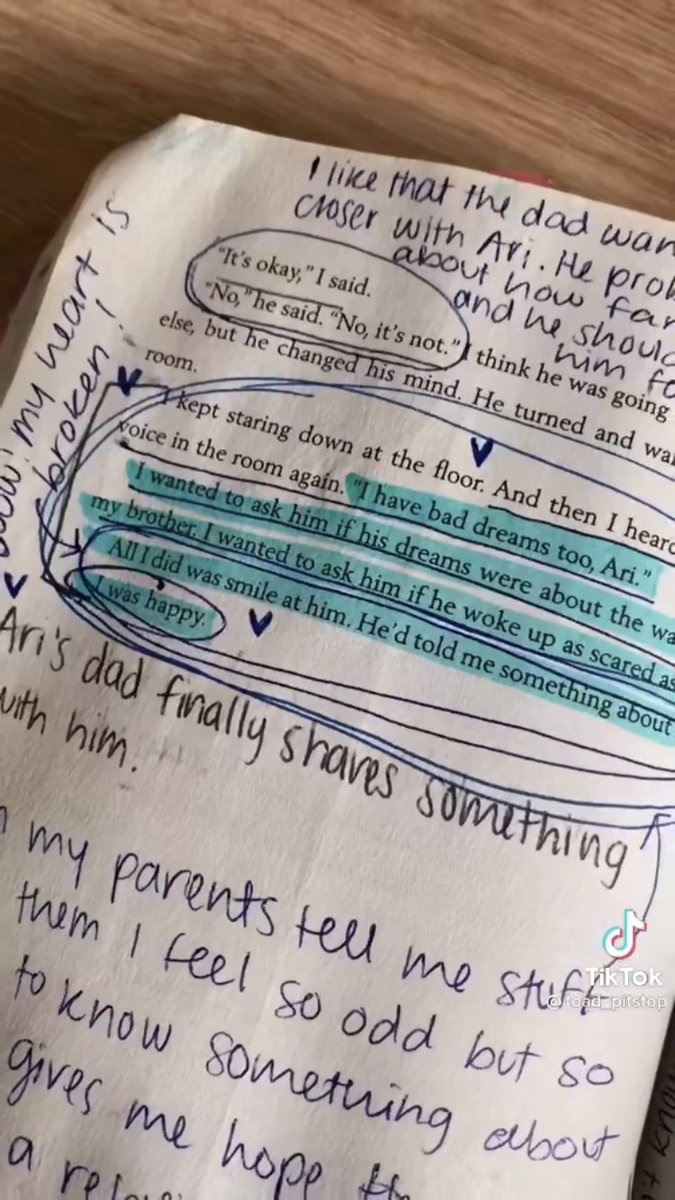 I like that the dad wan
closer with Ari. He prob
about how far
and he should
him fo
my heart is
broken!
"It's okay," I said.
"No," he said. "No, it's not." I think he was going
else, but he changed his mind. He turned and wal
room.
I kept staring down at the floor. And then I heard
voice in the room again. "I have bad dreams too, Ari."
I wanted to ask him if his dreams were about the wa
my brother. I wanted to ask him if he woke up as scared as
All I did was smile at him. He'd told me something about
I was happy.
Ari's dad finally shares something
with him.
my parents tell me stuff
them I feel so odd but so
to know something about
gives me hope
a
TikTok
@toad_pitstop